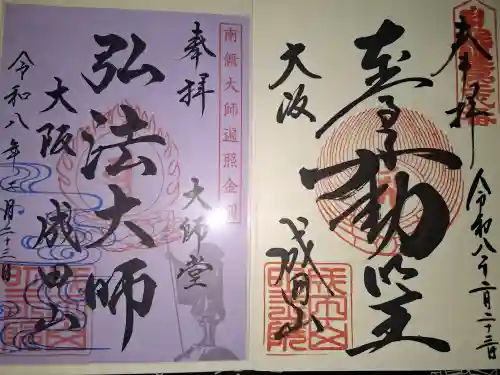 奉拝
南無大師遍照金剛
弘法大師
大師堂
大阪
成田山
令和八年二月二十三日
奉拝
大阪
成田山
令和八年二月二十三日